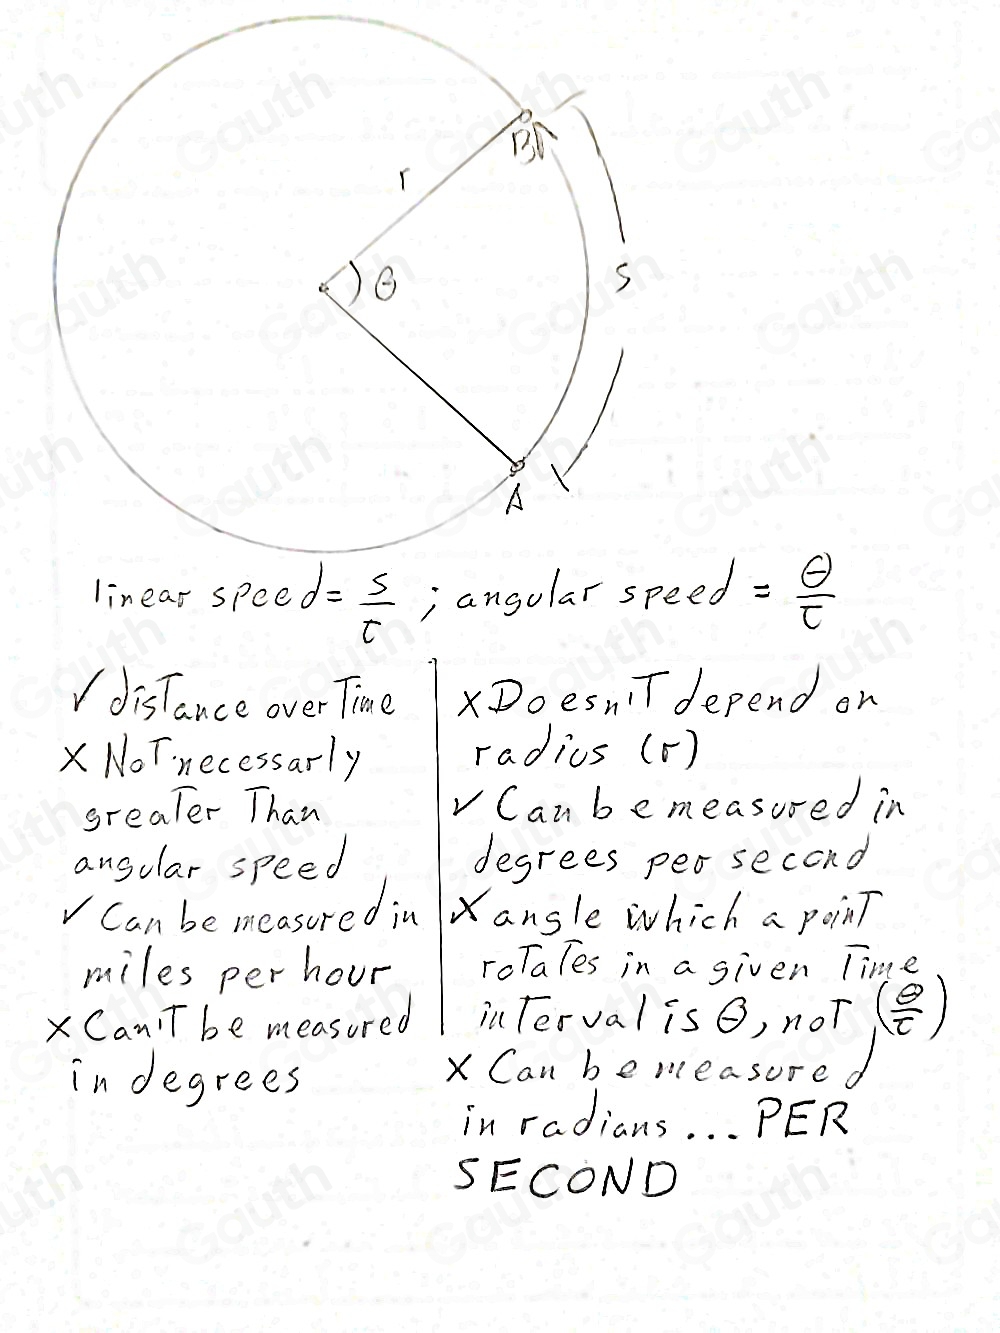 B
r
θ
s
A
linear speed = s/t ; angular speed = θ/t
✓ distance over Time
x Not necessarly
greater Than
angular speed
✓ Can be measured in
miles per hour
x Can't be measured
in degrees
x Doesn't depend on
radius (r)
✓ Can be measured in
degrees per second
x angle which a point
rotates in a given Time
interval is θ, not (θ/t)
x Can be measured
in radians ... PER
SECOND
Gauth